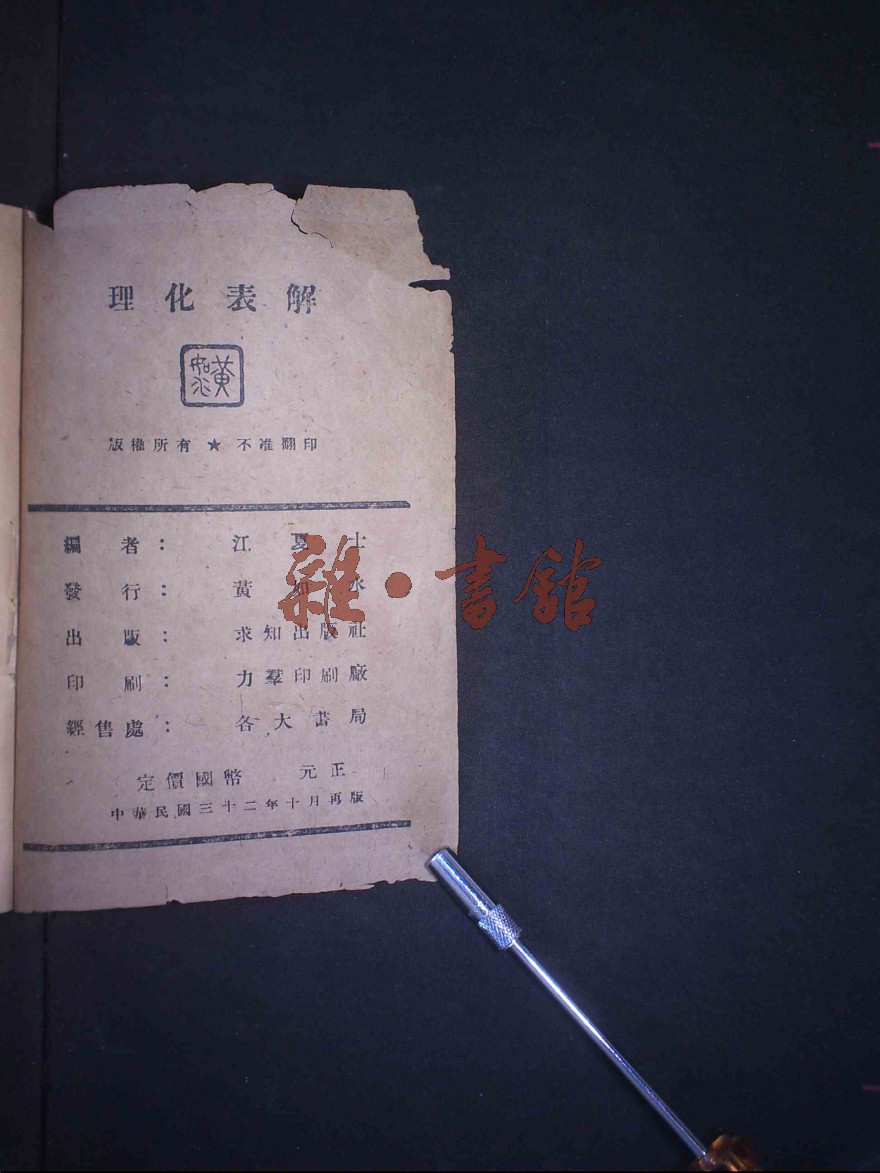 理化表解
版權所有 ★ 不准翻印
編者： 江夏士
發行： 黃如水
出版： 求知出版社
印刷： 力羣印刷廠
經售處： 各大書局
定價國幣 元正
中華民國三十二年十月再版
雜·書館